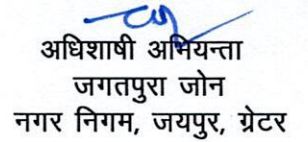 अधिशाषी अभियन्ता
जगतपुरा जोन
नगर निगम, जयपुर, ग्रेटर